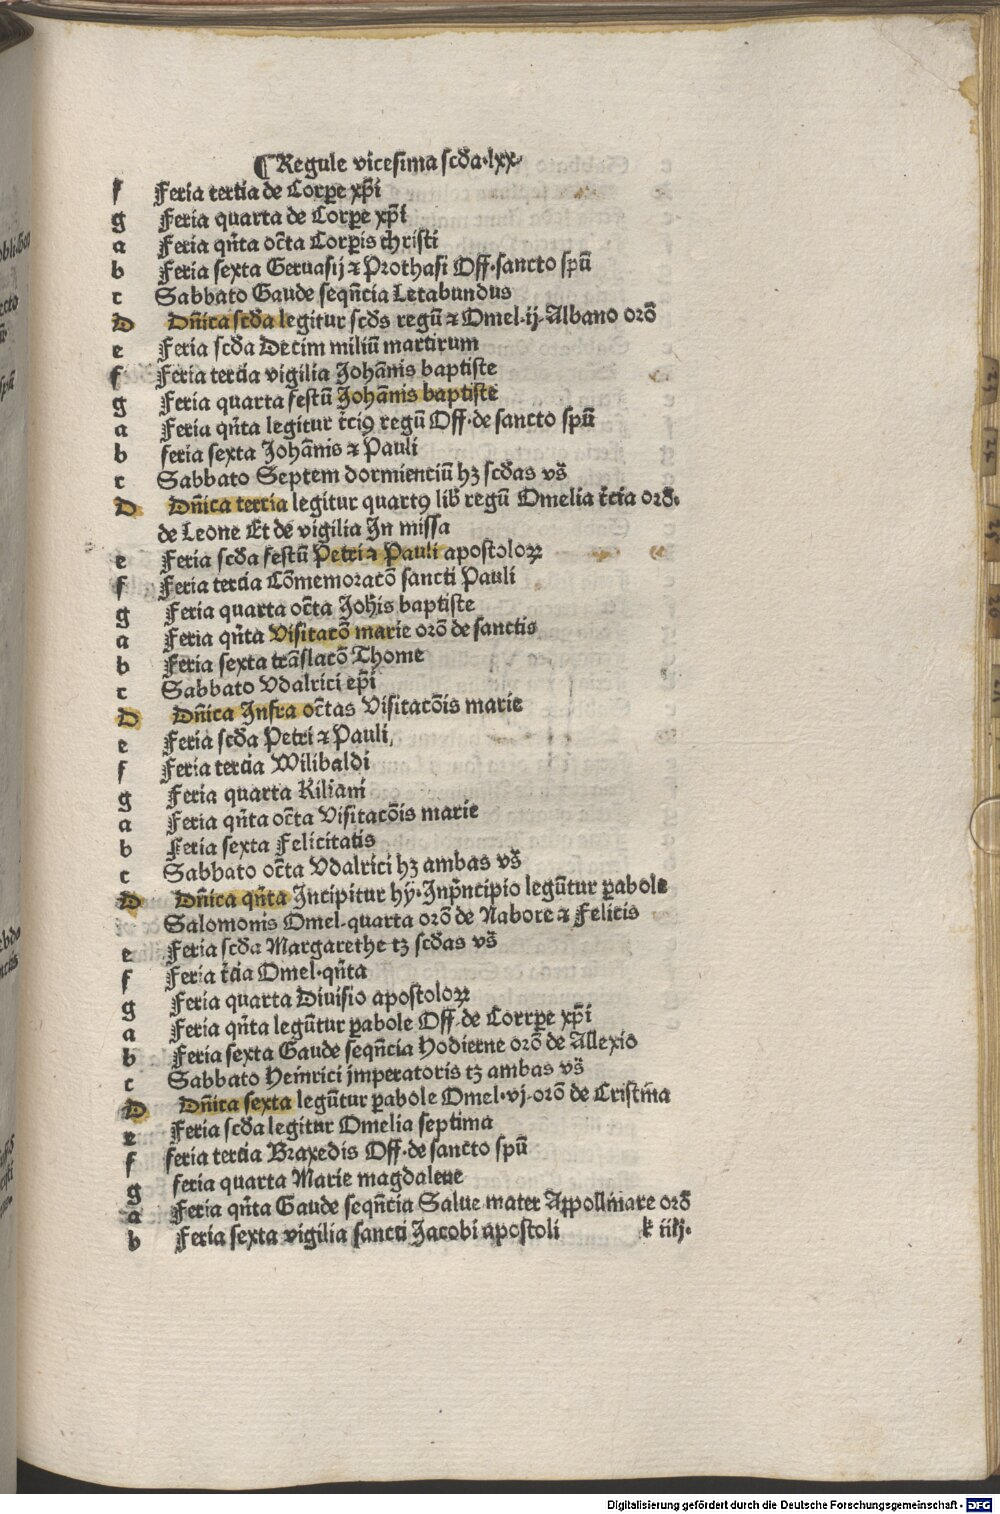 ¶Regule vicesima scd̄a·lxx·
f Feria tertia de Corꝑe xp̄i
g Feria quarta de Corꝑe xp̄i
a Feria qn̄ta oct̄a Corꝑis christi
b Feria sexta Geruasij ⁊ Prothasi Off·sancto spū
c Sabbato Gaude seqn̄cia Letabundus
D Dn̄ica scd̄a legitur scd̄s regū ⁊ Omel·ij·Albano orō
e Feria scd̄a Decim miliū martirum
f Feria tercia vigilia Johān̄is baptiste
g Feria quarta festū Johān̄is baptiste
a Feria qn̄ta legitur t̄ciꝰ regū Off·de sancto spū
b feria sexta Johān̄is ⁊ Pauli
c Sabbato Septem dormienciū hꝫ scd̄as vs̄
D Dn̄ica tercia legitur quartꝰ lib̄ regū Omelia t̄cia orō·
de Leone Et de vigilia In missa
e Feria scd̄a festū Petri ⁊ Pauli apostoloꝝ
f Feria tercia Cōmemoratō sancti Pauli
g Feria quarta oct̄a Joh̄is baptiste
a Feria qn̄ta Visitatō marie orō de sanctis
b Feria sexta trāslatō Thome
c Sabbato Vdalrici ep̄i
D Dn̄ica Infra oct̄as Visitatōis marie
e Feria scd̄a Petri ⁊ Pauli
f Feria tercia Wilibaldi
g Feria quarta Kiliani
a Feria qn̄ta oct̄a Visitatōis marie
b Feria sexta Felicitatis
c Sabbato oct̄a Vdalrici hꝫ ambas vs̄
D Dn̄ica qn̄ta Incipitur hy·Inpn̄cipio legūtur ꝑabole
Salomonis Omel·quarta orō de Nabore ⁊ Felicis
e Feria scd̄a Margarethe tꝫ scd̄as vs̄
f Feria t̄cia Omel·qn̄ta
g Feria quarta Diuisio apostoloꝝ
a Feria qn̄ta legūtur ꝑabole Off·de Corrꝑe xp̄i
b Feria sexta Gaude seqn̄cia Hodierne orō de Allexio
c Sabbato Heinrici imperatoris tꝫ ambas vs̄
D Dn̄ica sexta legūtur ꝑabole Omel·vj·orō de Cristin̄a
e Feria scd̄a legitur Omelia septima
f feria tercia Braxedis Off·de sancto spū
g feria quarta Marie magdalene
a Feria qn̄ta Gaude seqn̄cia Salue mater Appollinare orō
b Feria sexta vigilia sancti Jacobi apostoli k iiij·
Digitalisierung gefördert durch die Deutsche Forschungsgemeinschaft · DFG